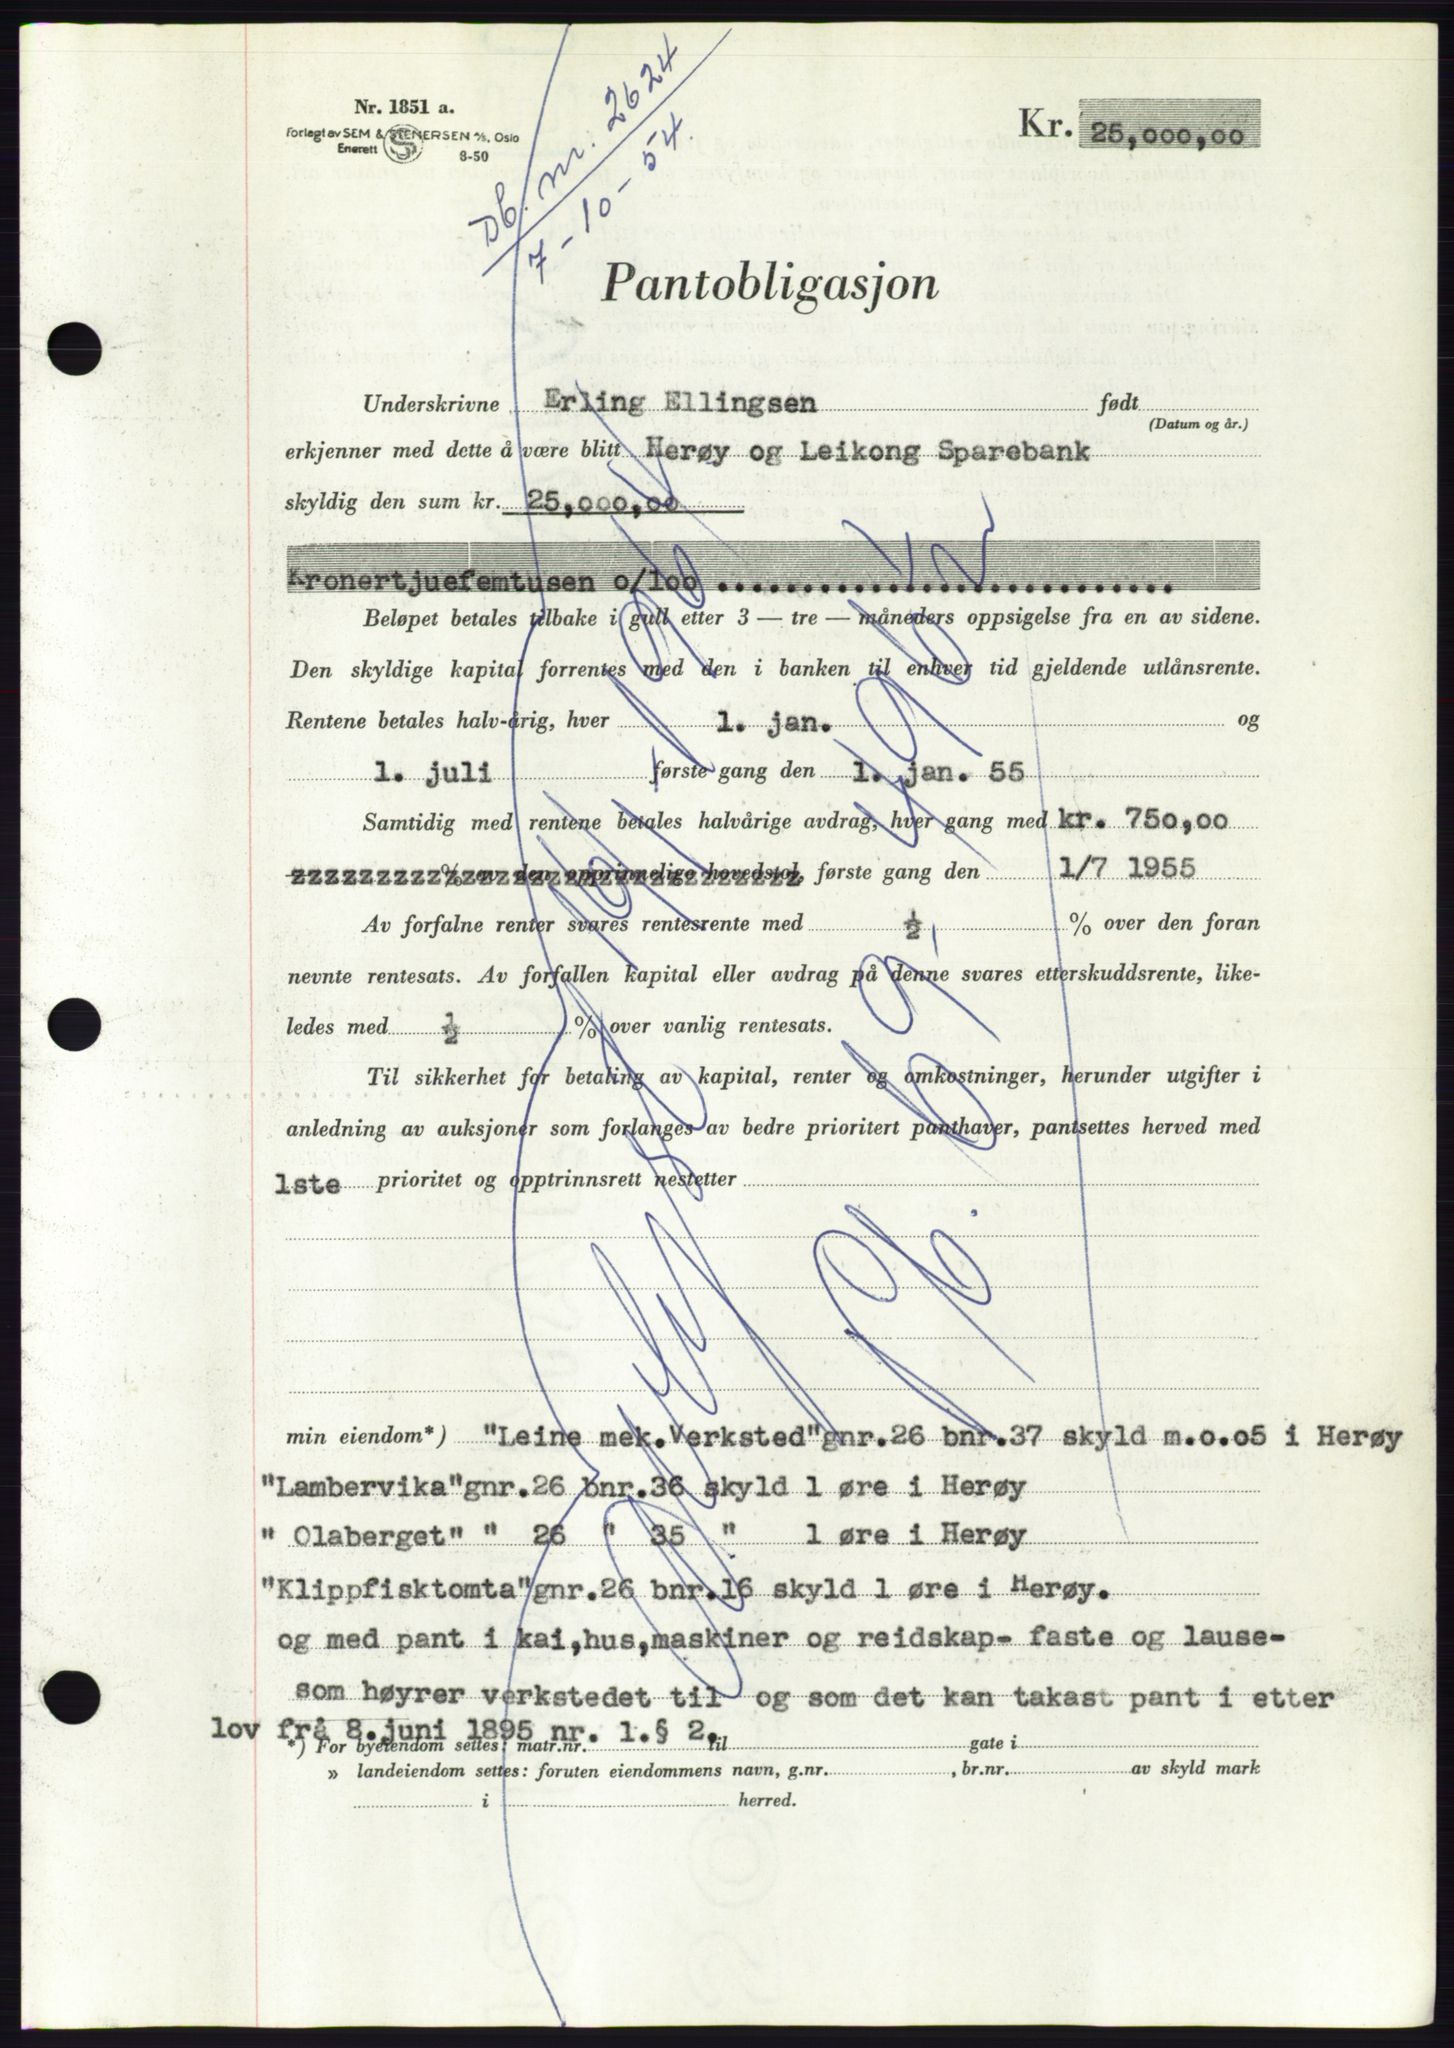 Nr. 1851 a.
Forlagt av SEM & STENERSEN A/S, Oslo
Enerett 8-50
Db. nr. 2624
7-10-54.
Kr. 25,000,00
Pantobligasjon
Underskrivne Erling Ellingsen født
(Datum og år.)
erkjenner med dette å være blitt Herøy og Leikong Sparebank
skyldig den sum kr. 25,000,00
Kronertjuefemtusen 0/100 ...........................
Beløpet betales tilbake i gull etter 3 — tre — måneders oppsigelse fra en av sidene.
Den skyldige kapital forrentes med den i banken til enhver tid gjeldende utlånsrente.
Rentene betales halv-årig, hver 1. jan. og
1. juli første gang den 1. jan. 55
Samtidig med rentene betales halvårige avdrag, hver gang med kr. 750,00
% av den opprinnelige hovedstol, første gang den 1/7 1955
Av forfalne renter svares rentesrente med ½ % over den foran
nevnte rentesats. Av forfallen kapital eller avdrag på denne svares etterskuddsrente, like-
ledes med ½ % over vanlig rentesats.
Til sikkerhet for betaling av kapital, renter og omkostninger, herunder utgifter i
anledning av auksjoner som forlanges av bedre prioritert panthaver, pantsettes herved med
1ste prioritet og opptrinnsrett nestetter
min eiendom*) "Leine mek.Verksted"gnr.26 bnr.37 skyld m.0.05 i Herøy
"Lambervika"gnr.26 bnr.36 skyld 1 øre i Herøy
" Olaberget" " 26 " 35 " 1 øre i Herøy
"Klippfisktomta"gnr.26 bnr.16 skyld 1 øre i Herøy.
og med pant i kai,hus,maskiner og reidskap- faste og lause-
som høyrer verkstedet til og som det kan takast pant i etter
lov frå 8.juni 1895 nr. 1.§ 2.
*) For byeiendom settes: matr.nr. til gate i
» landeiendom settes: foruten eiendommens navn, g.nr. , br.nr. av skyld mark
i herred.